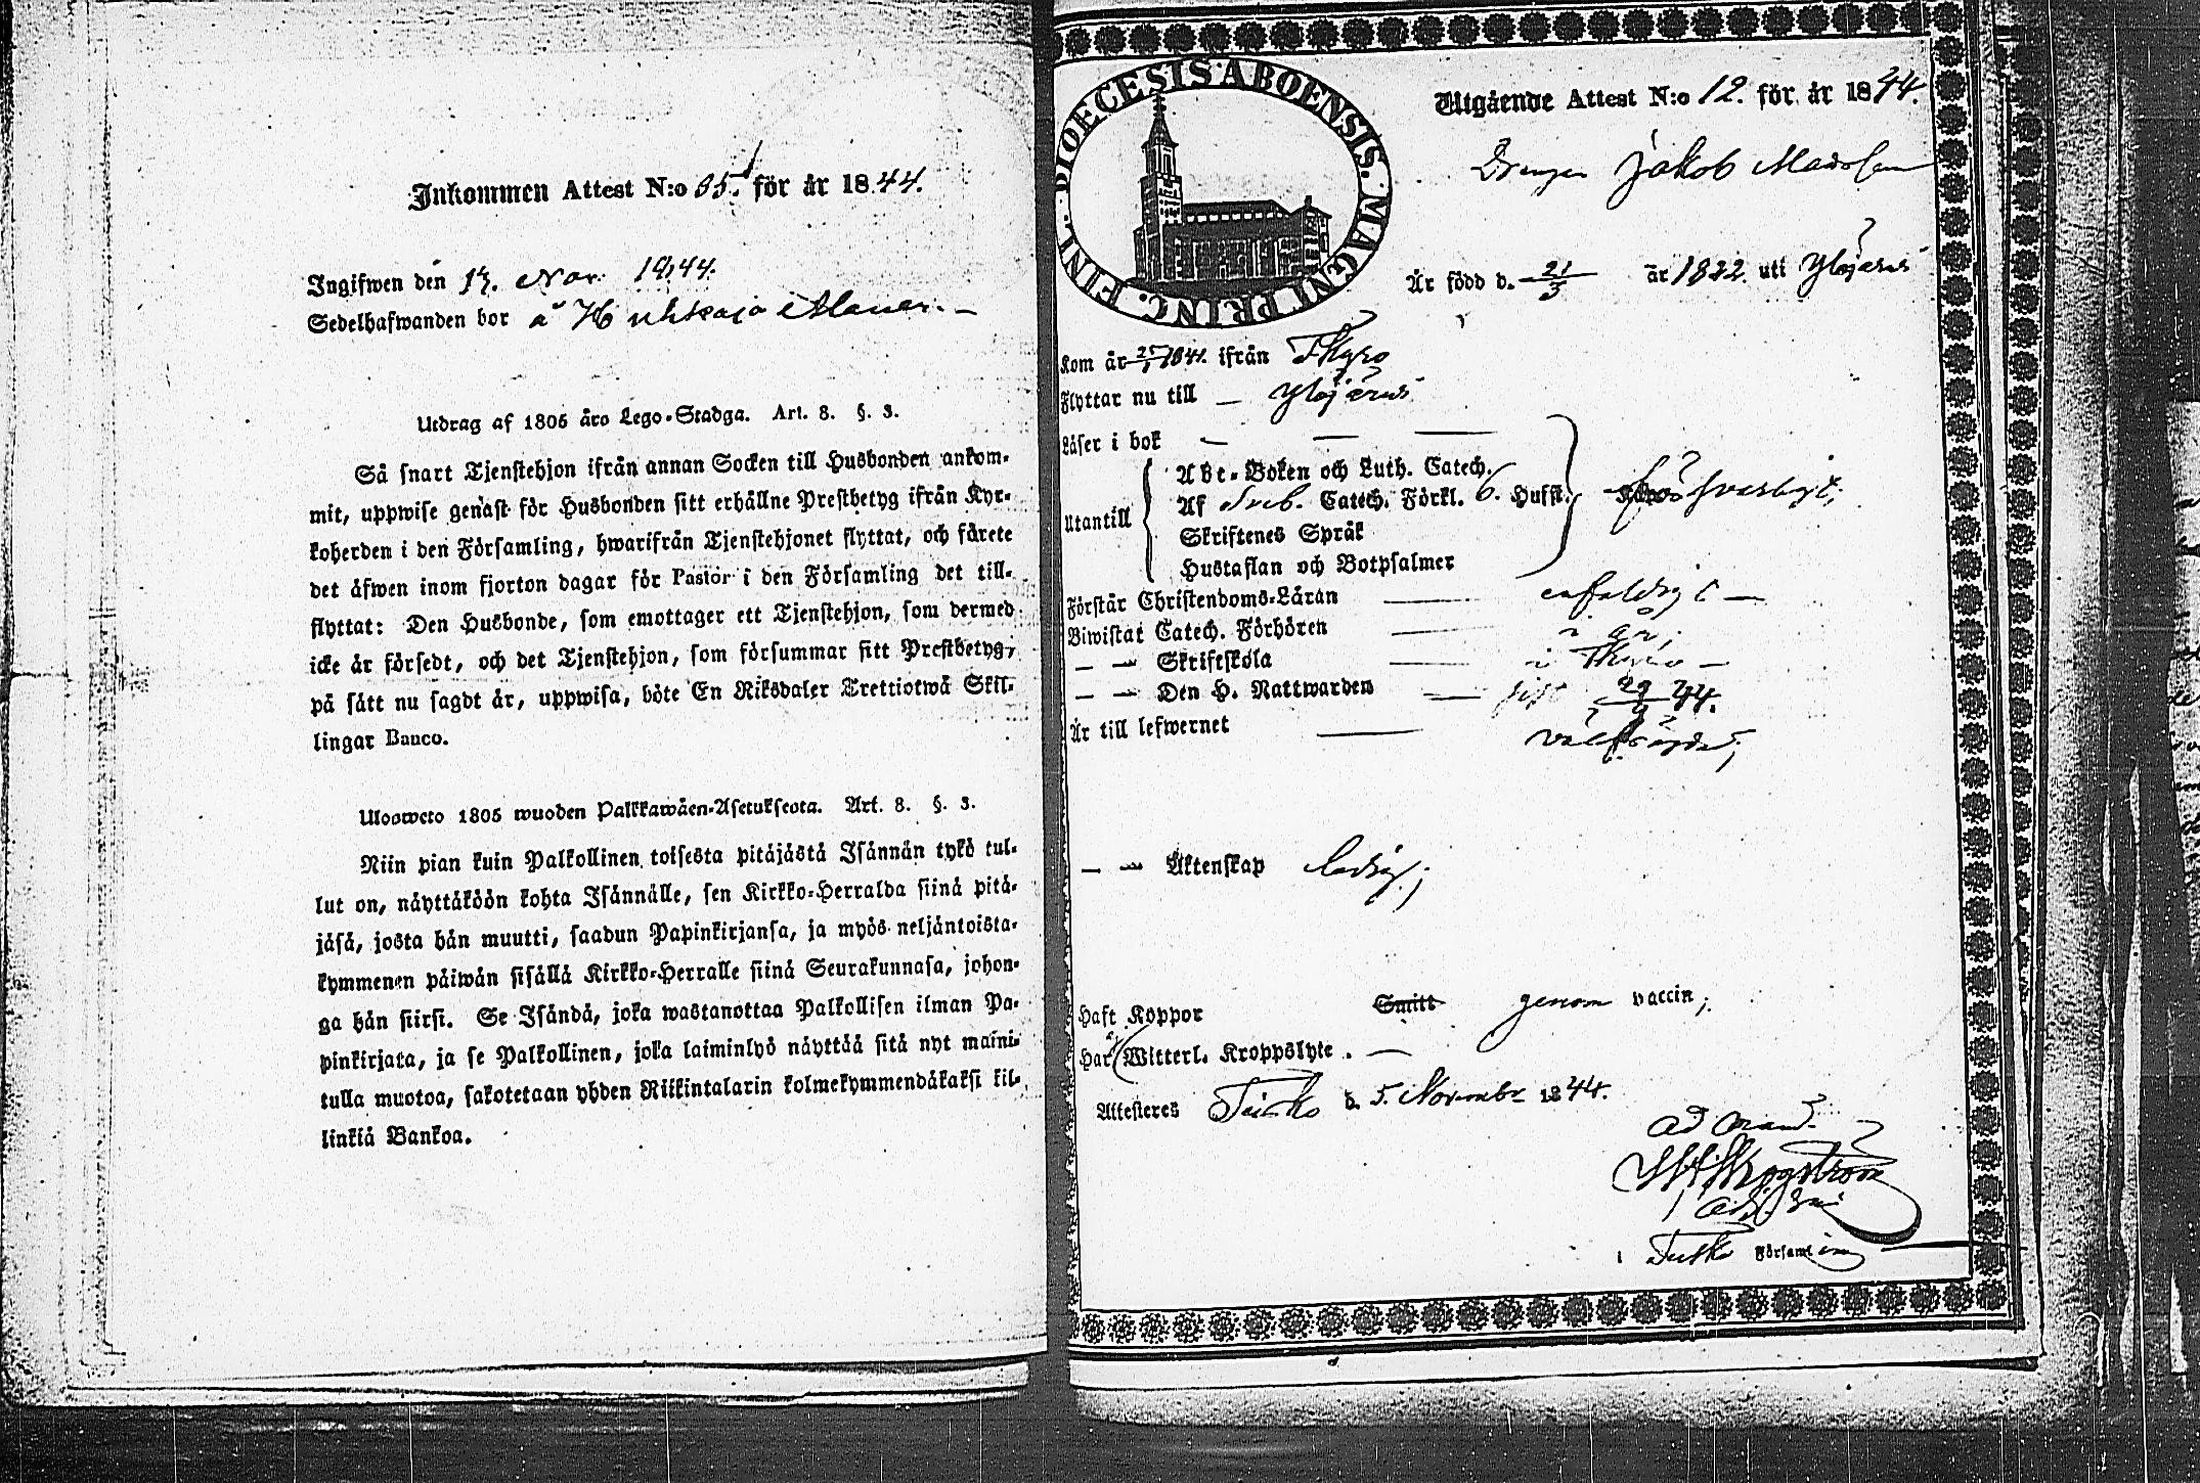 Inkommen Attest N:o 35. för år 1844.
Ingifwen den 17. Nov. 1844.
Sedelhafwanden bor å
Utdrag af 1805 års Lego-Stadga. Art. 8. §. 3.
Så snart Tjenstehjon ifrån annan Socken till Husbonden ankom-
mit, uppwise genast för Husbonden sitt erhållne Prestbetyg ifrån Kyr-
koherden i den Församling, hwarifrån Tjenstehjonet flyttat, och förete
det äfwen inom fjorton dagar för Pastor i den Församling det till-
flyttat: Den Husbonde, som emottager ett Tjenstehjon, som dermed
icke är försedt, och det Tjenstehjon, som försummar sitt Prestbetyg,
på sätt nu sagdt är, uppwisa, böte En Riksdaler Trettiotwå Skil-
lingar Banco.
Ulosweto 1805 wuoden Palkkawäen-Asetuksesta. Art. 8. §. 3.
Niin pian kuin Palkollinen toisesta pitäjästä Isännän tykö tul-
lut on, näyttäköön kohta Isännälle, sen Kirkko-Herralda siinä pitä-
jäsä, josta hän muutti, saadun Papinkirjansa, ja myös neljäntoista-
kymmenen päiwän sisällä Kirkko-Herralle siinä Seurakunnasa, johon-
ga hän siirsi. Se Isändä, joka wastanottaa Palkollisen ilman Pa-
pinkirjata, ja se Palkollinen, joka laiminlyö näyttää sitä nyt maini-
tulla muotoa, sakotetaan yhden Riikintalarin kolmekymmendäkaksi kil-
linkiä Bankoa.
DIOECESIS ABOENSIS. MAGNI PRINC. FINL.
Utgående Attest N:o 12. för år 1844.
Drengen Jakob Madsson
Är född d. 21/5 år 1822 uti Ylöjärvi
Kom år 1841. ifrån TKyro
Flyttar nu till — Ylöjärvi
Läser i bok — — —
Utantill
Abc-Boken och Luth. Catech.
Af Sveb. Catech. Förkl. 6. Hufst.
Skriftenes Språk
Hustaflan och Botpsalmer
försvarligt;
Förstår Christendoms-Läran — enfaldigt —
Biwistat Catech. Förhören — i år;
— — Skriftskola — i TKyro —
— — Den H. Nattwarden — sist 29/9 44.
Är till lefwernet — välfrägdad;
— — Äktenskap ledig;
Haft Koppor Smitt genom vaccin;
Har Witterl. Kroppslyte. —
Attesteres d. 5. November 1844.
Ad mand.
Församling